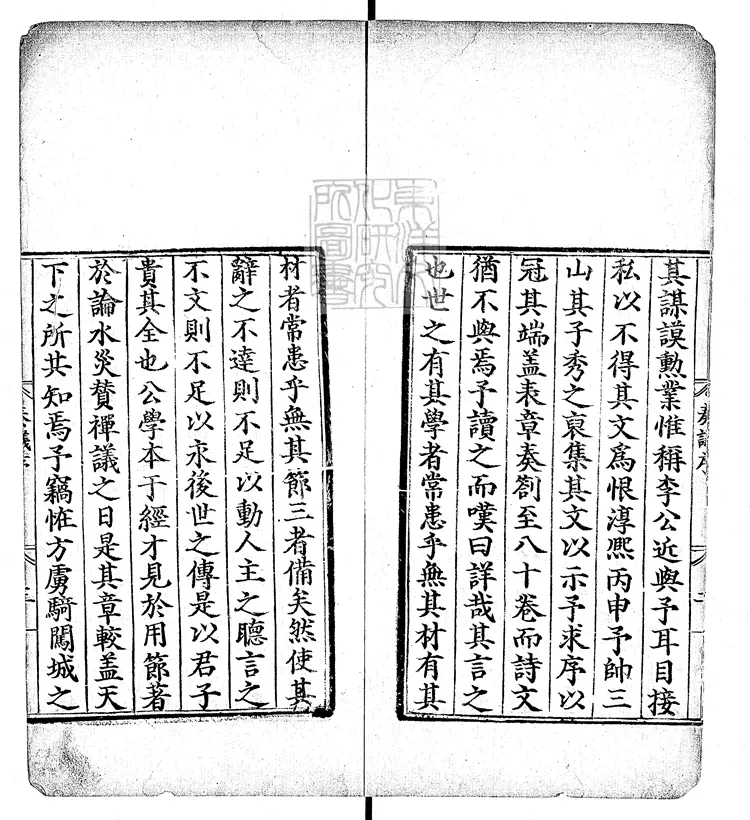 其謀謨勲業惟稱李公近與予耳目接
私以不得其文爲恨淳熈丙申予帥三
山其子秀之裒集其文以示予求序以
冠其端盖表章奏劄至八十卷而詩文
猶不與焉予讀之而嘆曰詳哉其言之
也世之有其學者常患乎無其材有其
材者常患乎無其節三者備矣然使其
辭之不達則不足以動人主之聽言之
不文則不足以永後世之傳是以君子
貴其全也公學本于經才見於用節著
於論水災賛禪議之日是其章較盖天
下之所共知焉予竊恠方虜騎闖城之
奏議序
二